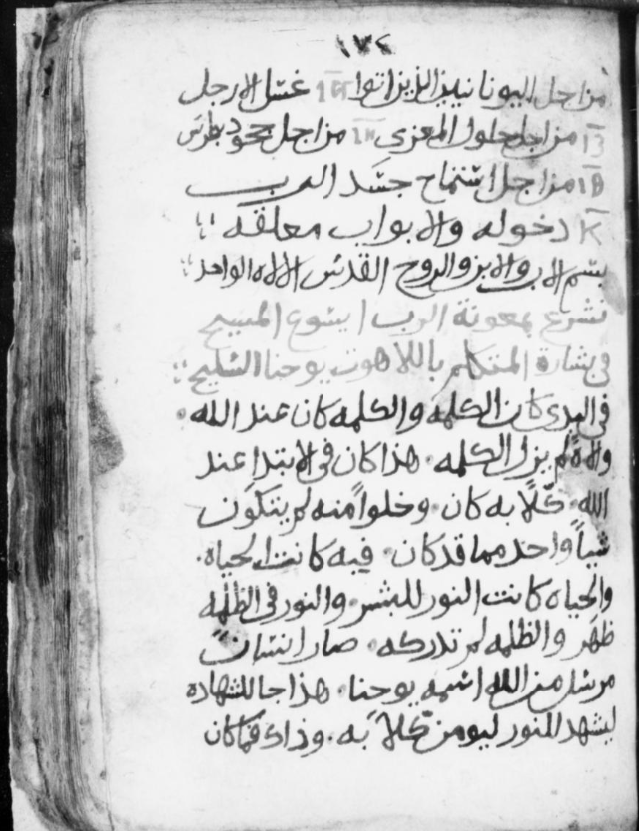 ١٧٤
من اجل اليونانيين الذين اتوا غسل الارجل
من اجل حلول المعزى من اجل جحود بطرس
من اجل اسْتماح جسَد الرب
K دخوله والابواب معلقه
بسْم الاب والابن والروح القدس الالاه الواحد
نشرع بمعونة الرب ايسوع المسيح
فى بشارة المتكلم باللاهوت يوحنا السليح
فى البدى كان الكلمه والكلمه كان عند الله
والاه لم يزل الكلمه. هذا كان فى الابتدا عند
الله. كلاً به كان. وخلواً منه لم يتكون
شياً واحد مما قد كان. فيه كانت الحياه.
والحياه كانت النور للبشر. والنور فى الظلمه
ظهر والظلمه لم تدركه. صار انسان
مرسل من الله اسمه يوحنا. هذا جا للشهاده
ليشهد للنور ليومن كلاً به. وذاك فما كان